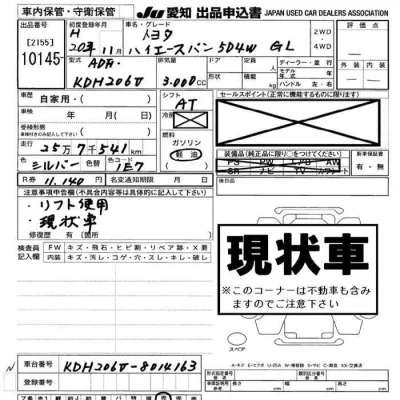 車内保管・守衛保管 JU 愛知 出品申込書 JAPAN USED CAR DEALERS ASSOCIATION
出品番号
[2155]
10145-
初度登録年月 車名・グレード
H 20年11月 トヨタ
ハイエースバン 5D4W GL
2WD
4WD
評価点
外装 内装
型式 ADF-
KDH206V
排気量
3.000cc
ディーラー・並行
ハンドル 左・右
車歴 自家用・
シフト
AT
セールスポイント(正常に機能するものに限ります)
車検 年 月(日)
冷房
走行
25万7千541km
燃料
ガソリン
軽油
装備品(純正品に限り○をつけてください)
PS PW AW
SR ナビ TV
新車時保証書
有・無
色 シルバー 色替 色コード 1E7
R券 11.140円 名変通知期限 月 日
後日品
注意事項申告欄(不具合内容等は具体的に記入)
・リフト使用
・現状車
修復歴 有(箇所 )
検査員
記入欄
FW キズ・飛石・ヒビ割・リペア跡・X要
内装 キズ・汚し・コゲ・穴・スレ・キレ・破し
現状車
※このコーナーは不動車も含み
ますのでご注意下さい
スペア
車台番号 KDH206V-8014163
登録番号
型式指定番号 類別区分番号
長さ cm 幅 cm 高さ cm